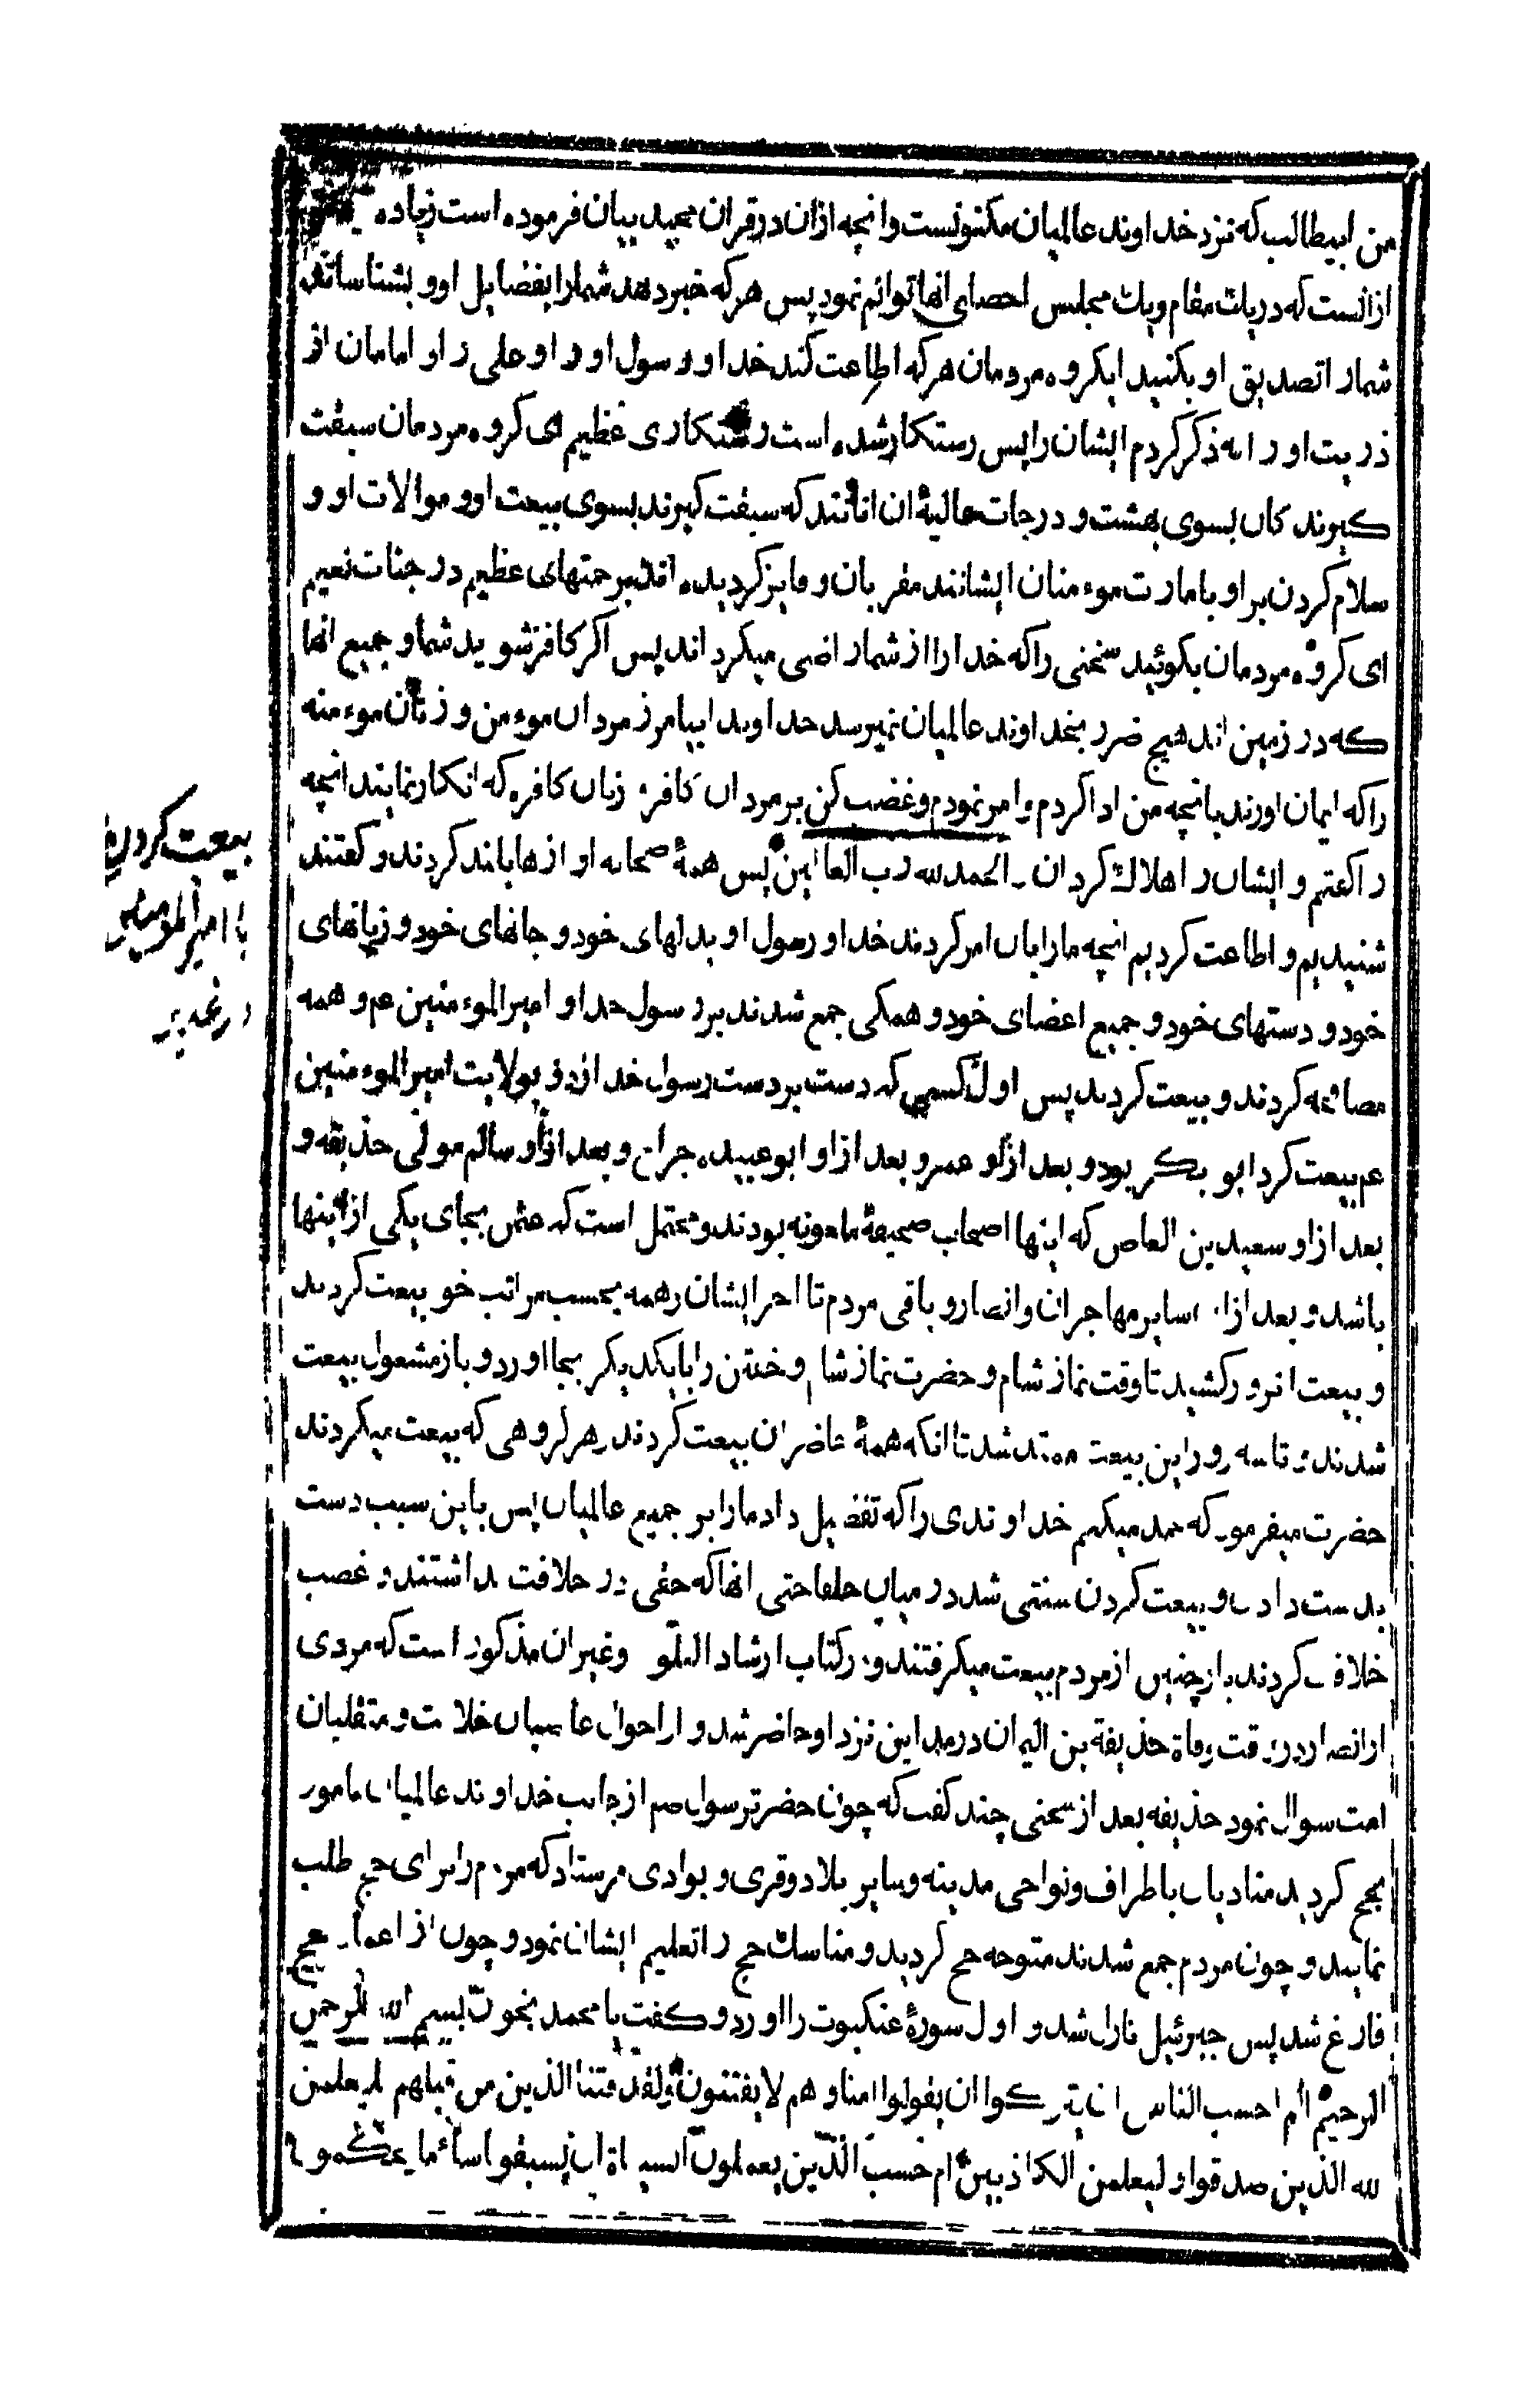 من ابیطالب که نزد خداوند عالمیان مکنونست وانچه ازان در قران مجید بیان فرموده است زیاده
ازانست که دریك مقام ویك مجلس احصای انها توانم نمود پس هرکه خبر دهد شمارا بفضایل او و بشناساند
شمارا تصدیق او بکنید ایکروه مردمان هرکه اطاعت کند خدا و رسول او را و علی را و امامان از
ذریت او را که ذکر کردم ایشان را پس رستکار شده است رستکاری عظیم ای کروه مردمان سبقت
کیرند کان بسوی بهشت و درجات عالیهٔ ان انانند که سبقت کیرند بسوی بیعت او و موالات او و
سلام کردن بر او بامارت موءمنان ایشانند مقربان و فایز کردیده اند برحمتهای عظیم در جنات نعیم
ای کروه مردمان بکوئید سخنی را که خدا را از شما راضی میکرداند پس اکر کافر شوید شما و جمیع انها
که در زمین اند هیچ ضرر بخداوند عالمیان نمیرسد خداوندا بیامرز مردان موءمن و زنان موءمنه
را که ایمان اورند بانچه من ادا کردم و امر نمودم و غضب کن بر مردان کافر و زنان کافره که انکار نمایند انچه
را کفتم و ایشان را هلاك کردان والحمد لله رب العالمین پس همهٔ صحابه اوازها بلند کردند و کفتند
شنیدیم و اطاعت کردیم انچه ما را بان امر کردند خدا و رسول او بدلهای خود و جانهای خود و زبانهای
خود و دستهای خود و جمیع اعضای خود و همکی جمع شدند بر رسول خدا و امیرالموءمنین عم و همه
مصافحه کردند و بیعت کردند پس اول کسی که دست بر دست رسول خدا زد و بولایت امیرالموءمنین
عم بیعت کرد ابو بکر بود و بعد از او عمر و بعد از او ابوعبیده جراح و بعد از او سالم مولی حذیفه و
بعد از او سعید بن العاص که اینها اصحاب صحیفهٔ ملعونه بودند و محتمل است که عثمن بجای یکی از اینها
باشد و بعد از ان سایر مهاجران و انصار و باقی مردم تا اخر ایشان همه بحسب مراتب خود بیعت کردند
و بیعت انروز کشید تا وقت نماز شام و حضرت نماز شام و خفتن را با یکدیکر بجا اورد و باز مشغول بیعت
شدند و تا سه روز این بیعت ممتد شد تا انکه همهٔ حاضران بیعت کردند هر کروهی که بیعت میکردند
حضرت میفرمود که حمد میکنم خداوندی را که تفضیل داد ما را بر جمیع عالمیان پس باین سبب دست
بدست دادن و بیعت کردن سنتی شد در میان خلفا حتی انها که حقی در خلافت نداشتند و غصب
خلافت کردند باز چنین از مردم بیعت میکرفتند و در کتاب ارشاد القلوب و غیر ان مذکور است که مردی
از انصار در وقت وفاة حذیفة بن الیمان در مداین نزد او حاضر شد و از احوال غاصبان خلافت و متقلبان
امت سوال نمود حذیفه بعد از سخنی چند کفت که چون حضرت رسول صم از جانب خداوند عالمیان مامور
بحج کردید منادیان باطراف و نواحی مدینه و سایر بلاد و قری و بوادی فرستاد که مردم را برای حج طلب
نمایند و چون مردم جمع شدند متوجه حج کردید و مناسك حج را تعلیم ایشان نمود و چون از اعمال حج
فارغ شد پس جبرئیل نازل شد و اول سورهٔ عنکبوت را اورد و کفت یا محمد بخوان بسم الله الرحمن
الرحیم الم احسب الناس ان یترکوا ان یقولوا امنا و هم لا یفتنون ولقد فتنا الذین من قبلهم فلیعلمن
لله الذین صدقوا و لیعلمن الکاذبین ام حسب الذین یعملون السیاة ان یسبقونا ساء ما یحکمون
بیعت کردن
با امیرالمومنین
در غدیر